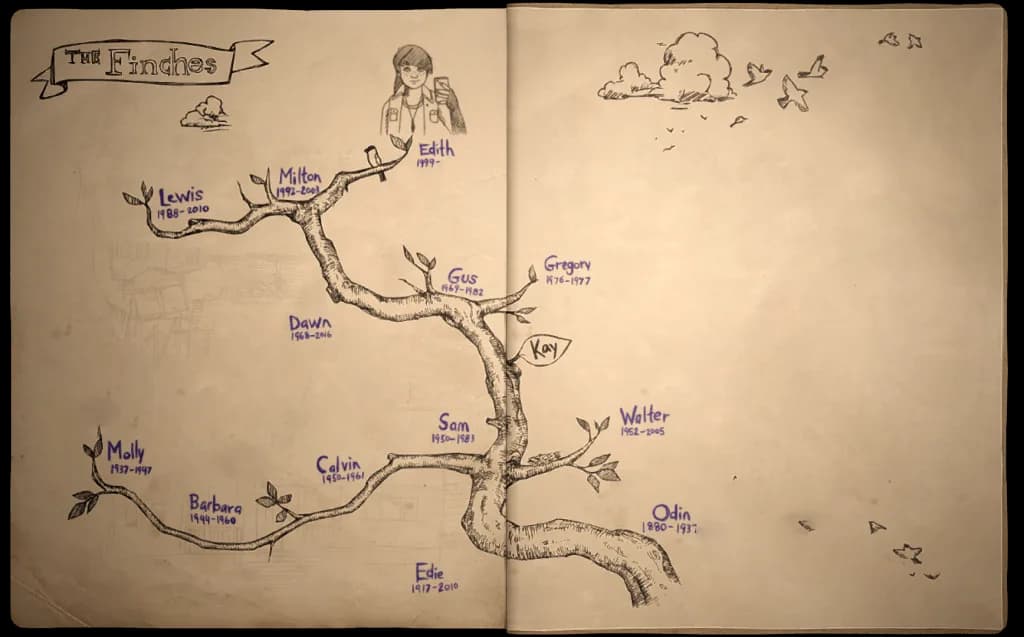 THE Finches
Edith
1999-
Milton
1992-2003
Lewis
1988-2010
Gus
1969-1982
Gregory
1976-1977
Dawn
1968-2016
Kay
Sam
1950-1983
Walter
1952-2005
Molly
1937-1947
Calvin
1950-1961
Barbara
1944-1960
Odin
1880-1937
Edie
1917-2010